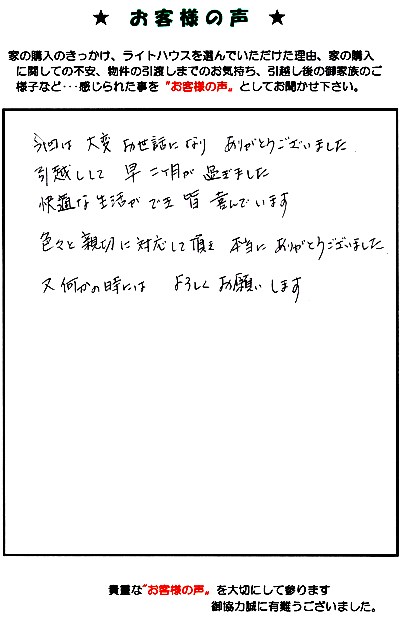 ★ お客様の声 ★
家の購入のきっかけ、ライトハウスを選んでいただけた理由、家の購入
に関しての不安、物件の引渡しまでのお気持ち、引越し後の御家族のご
様子など・・・感じられた事を "お客様の声" としてお聞かせ下さい。
今回は 大変 お世話になり ありがとうございました
引越しして 早 二ヶ月が 過ぎました
快適な生活ができ 皆 喜んでいます
色々と親切に対応して頂き 本当にありがとうございました
又 何かの時には よろしくお願いします
貴重な"お客様の声" を大切にして参ります
御協力誠に有難うございました。